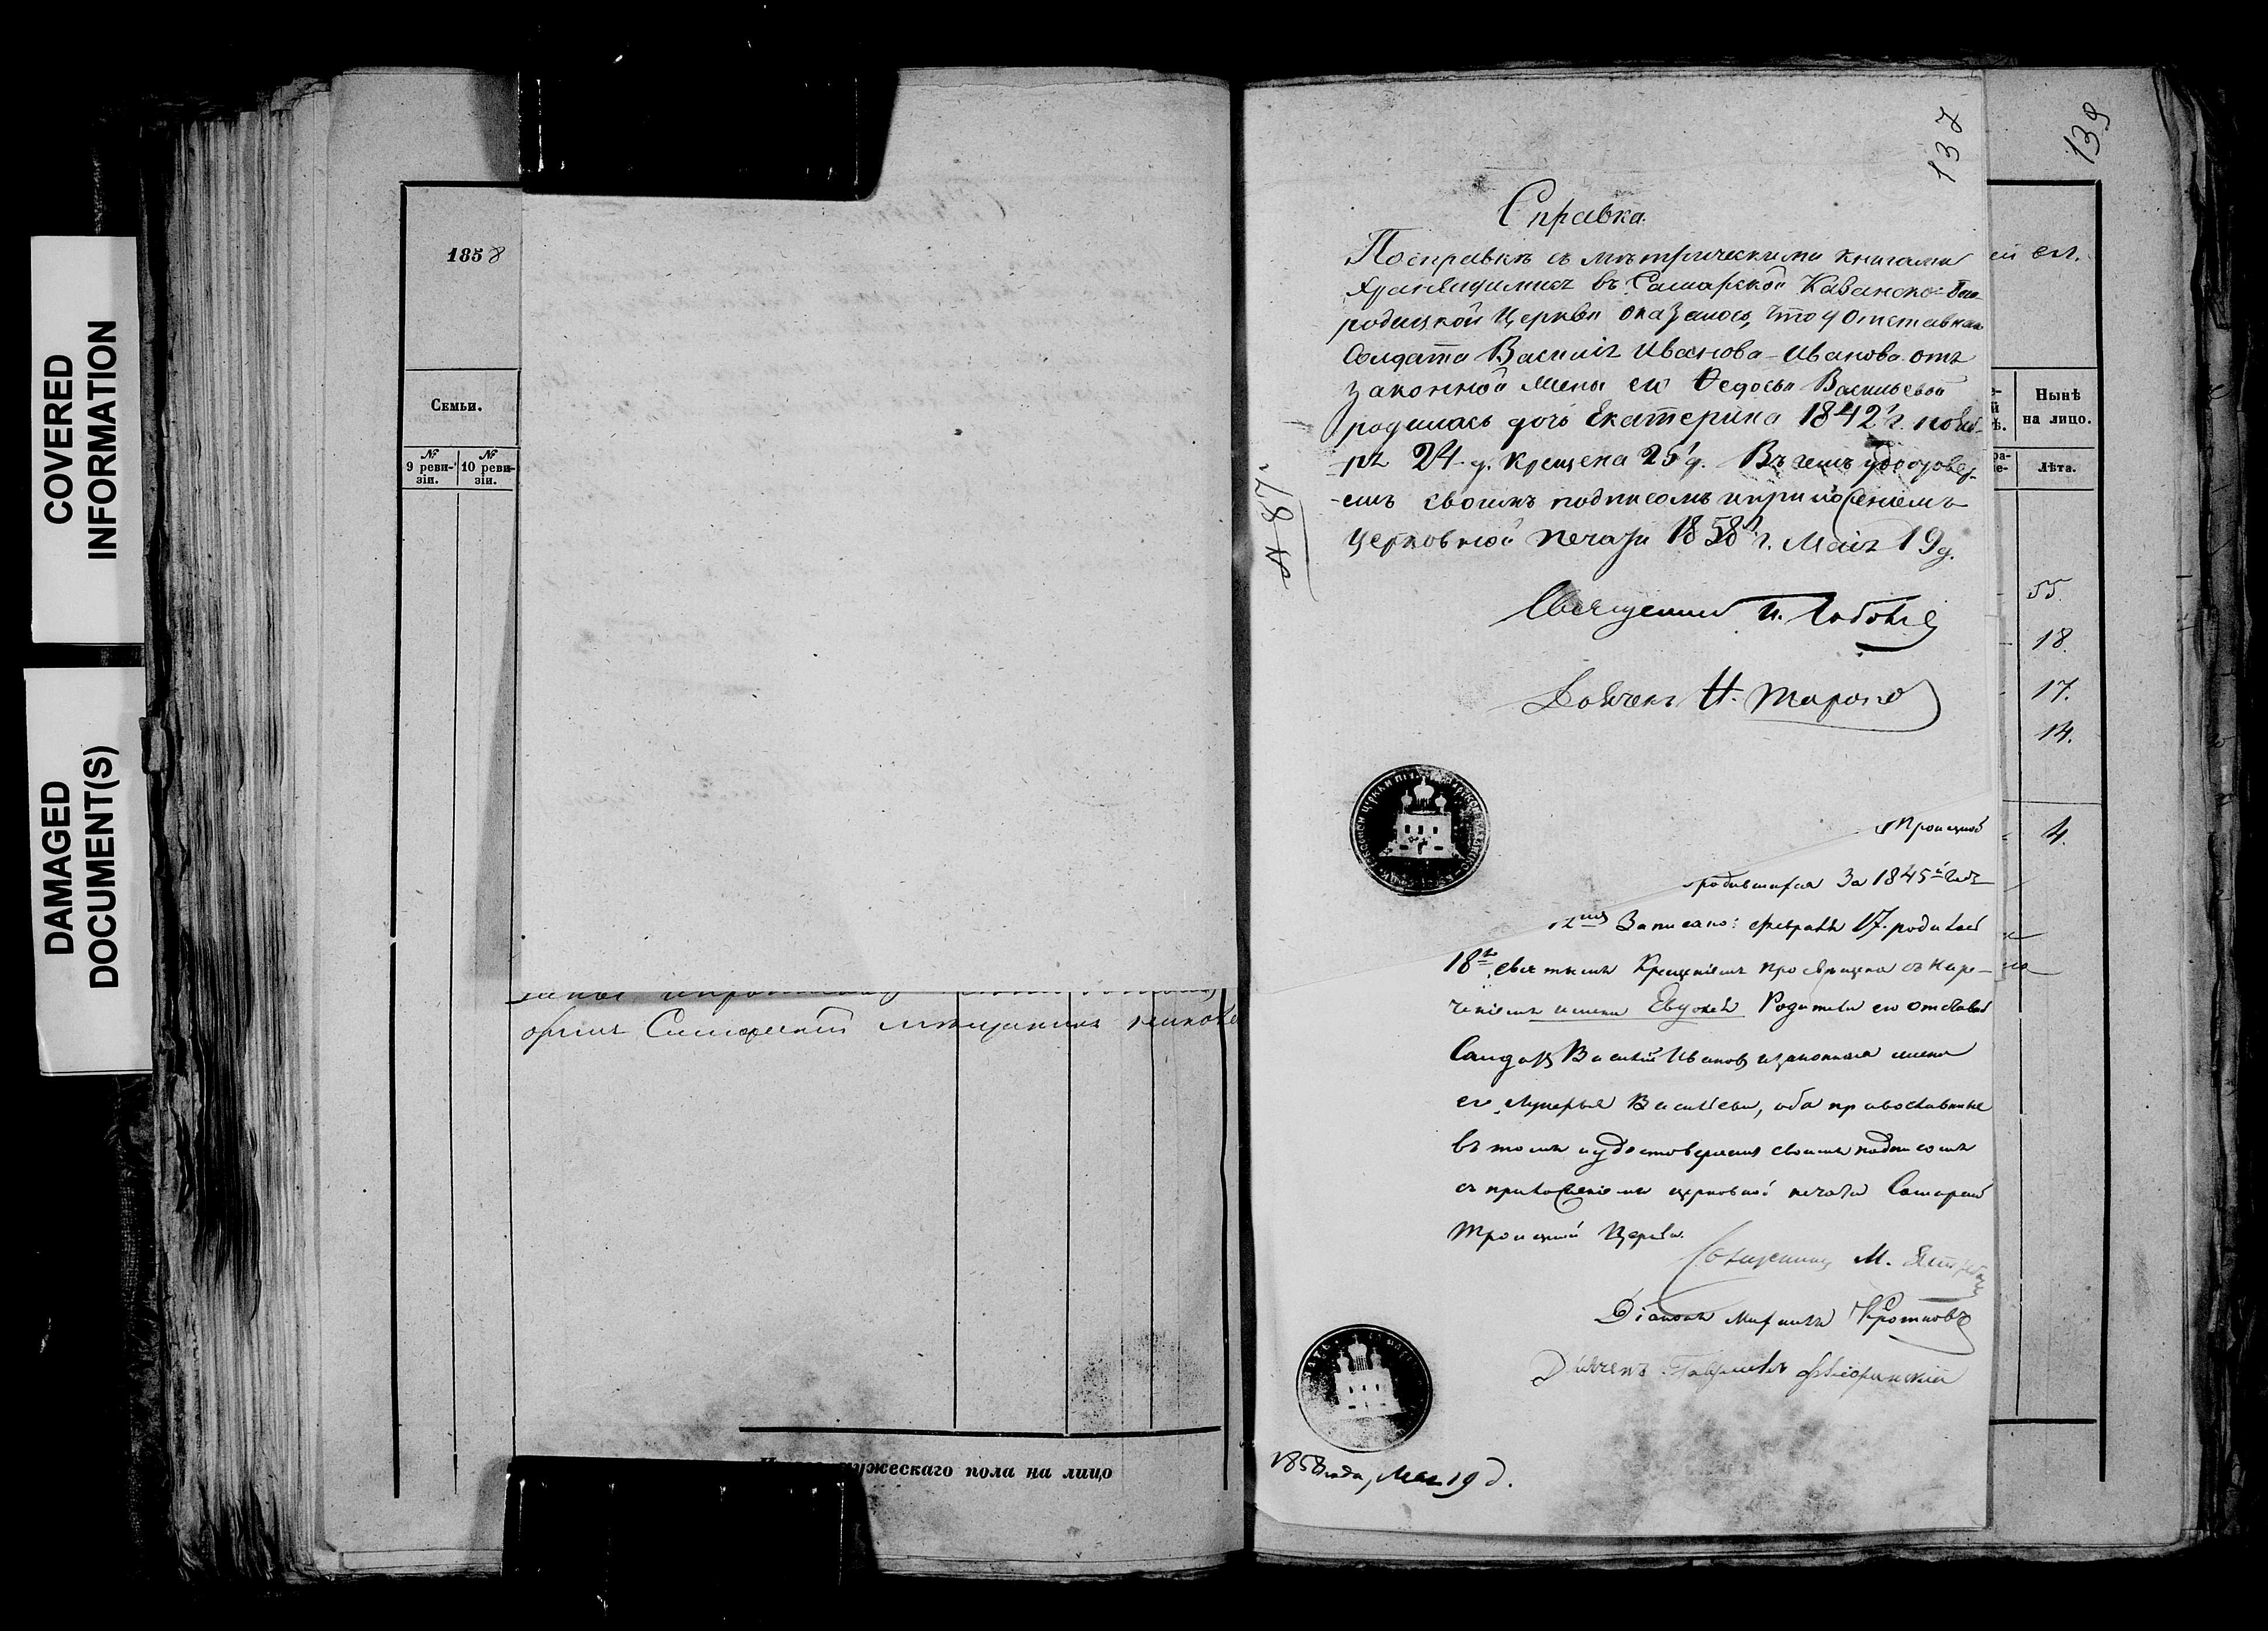 COVERED
INFORMATION
DAMAGED
DOCUMENT(S)
1858
Семьи.
№ 9 реви-зіи.
№ 10 реви-зіи.
Самарскій мещанинъ
мужескаго пола на лицо
138
Справка.
По справкѣ съ метрическими книгами
хранящимися въ Самарской Казанско-Бого-
родицкой Церкви оказалось, что у отставнаго
Солдата Василія Иванова Иванова отъ
законной жены его Ѳедосьи Васильевой
родилась дочь Екатерина 1842 г. нояб-
ря 24 д. крещена 25 д. Въ чемъ удостовѣр-
-емъ своимъ подписомъ и приложеніемъ
Церковной печати 1858 г. Маія 19 д.
Священникъ И.
Дьячекъ Н.
187
Троицкой
родившихся За 1845й годъ
Записано: февраля 17. родилась
18го, святымъ Крещеніемъ просвѣщена съ наре-
ченіемъ имени Евдокія Родители ея отставной
Солдатъ Василій Ивановъ и законная жена
его Лукерья Васильева, оба православные
въ томъ и удостовѣряемъ своимъ подписомъ
съ приложеніемъ церковной печати Самарской
Троицкой Церкви.
Священникъ М.
Діаконъ Кротковъ
Дьячекъ Гавріилъ Флоринскій
1858 года, Мая 19 д.
139
Нынѣ
на лицо.
Лѣта.
55.
18.
17.
14.
4.